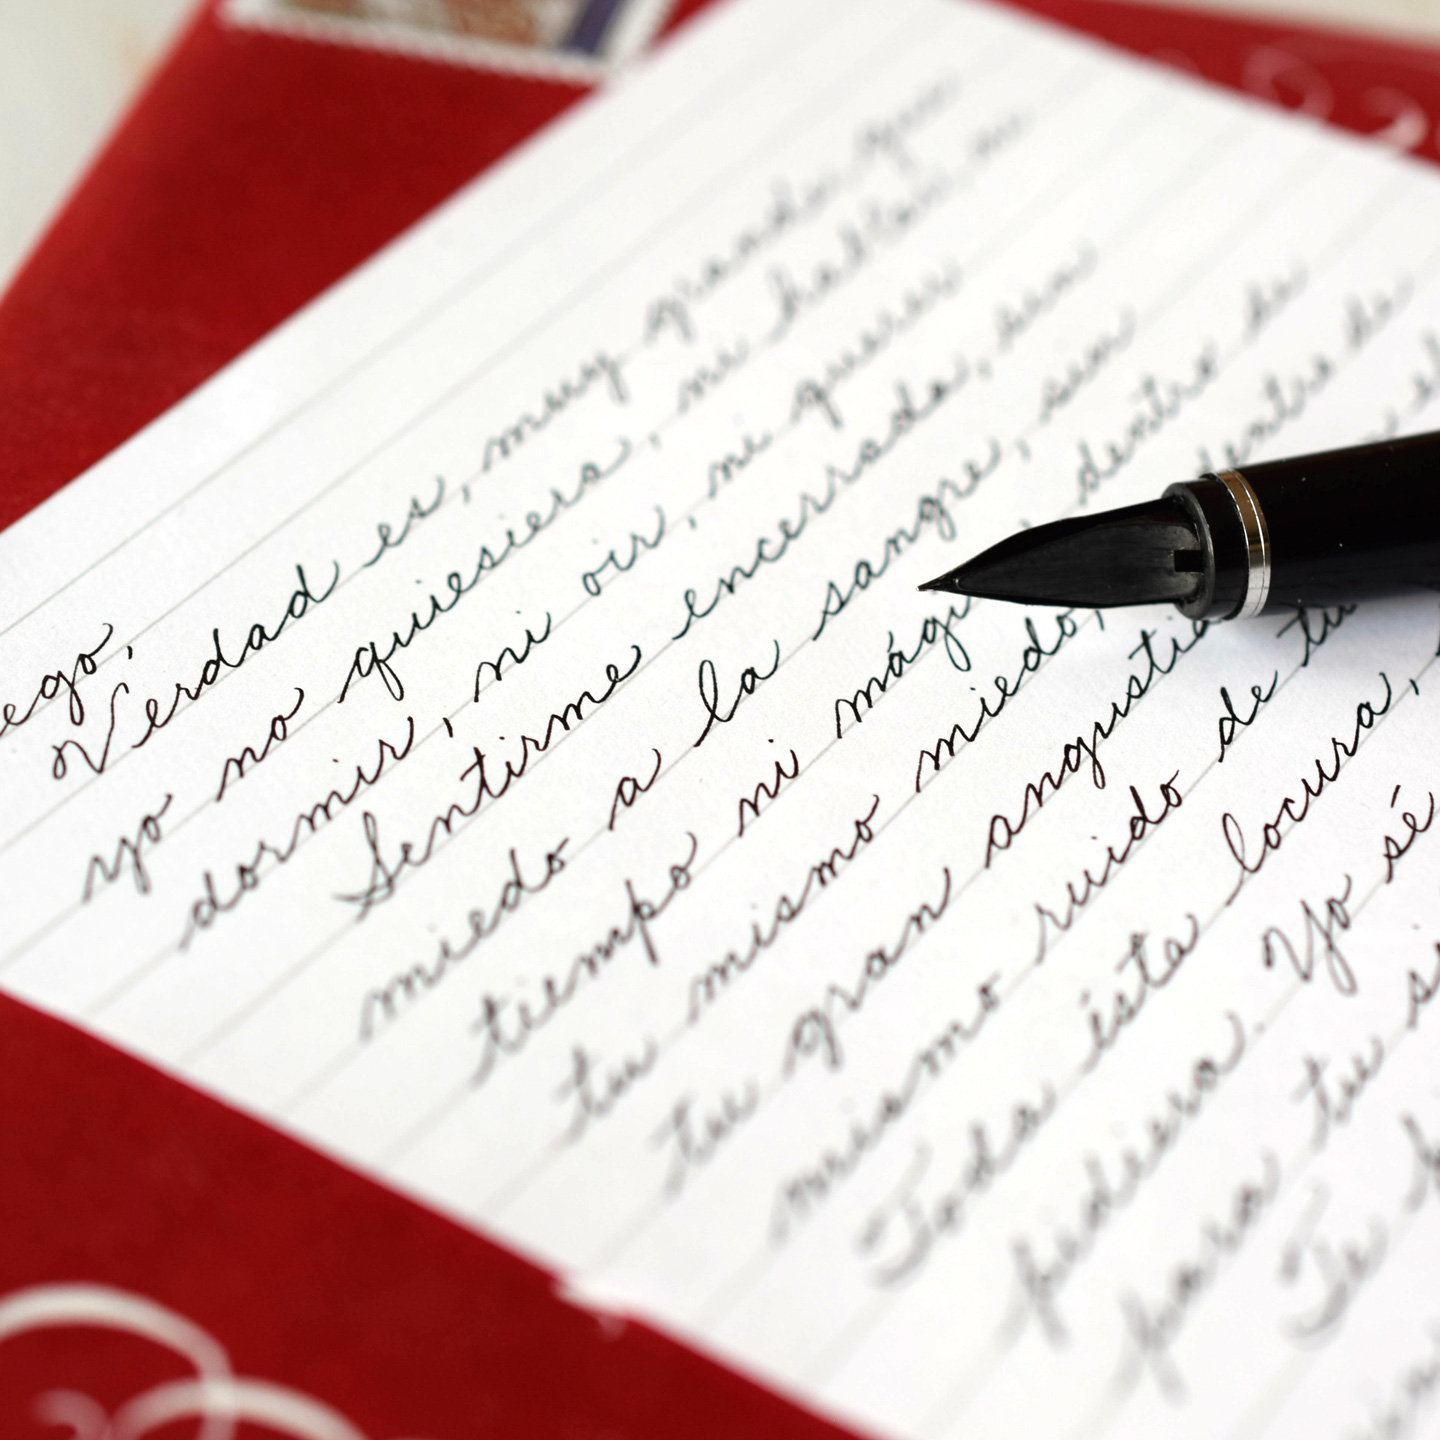 ego,
Verdad es, muy grande que
yo no quiesiera, ni hablar, ni
dormir, ni oir, ni querer
Sentirme encerrada, sin
miedo a la sangre, sin
tiempo ni mági dentro de
tu mismo miedo, dentro de
tu gran angustia
mismo ruido de tu
Toda ésta locura,
pediera. Yo sé
para tu
Te